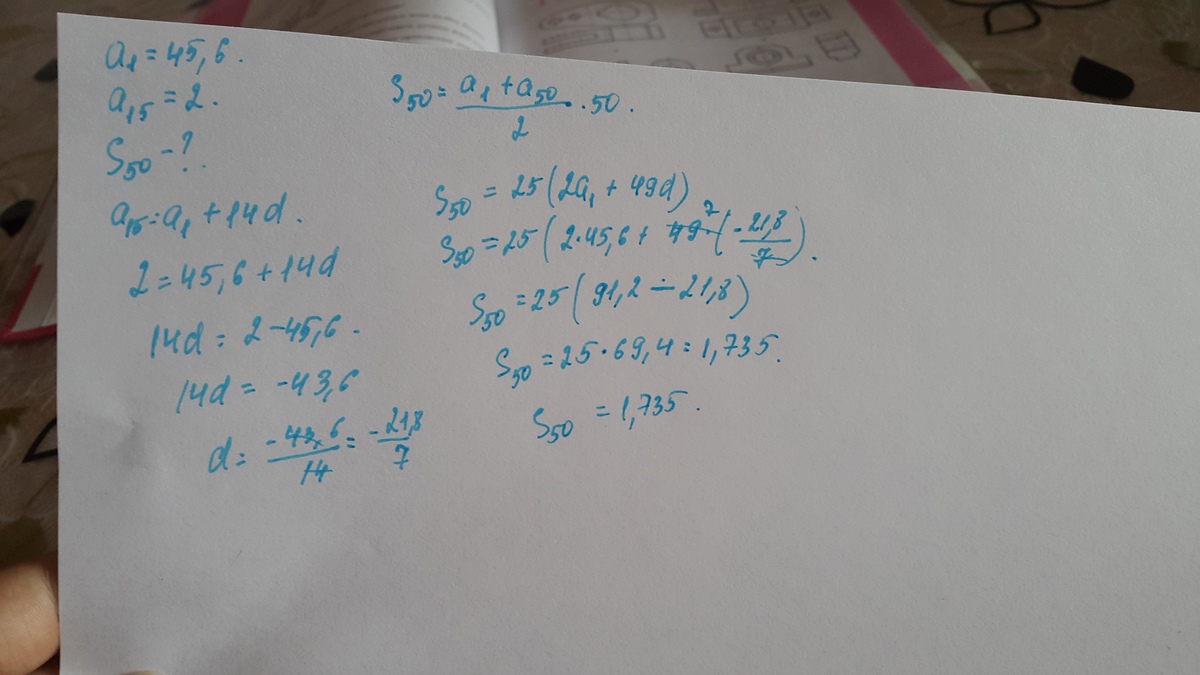 a₁ = 45,6.
a₁₅ = 2.
S₅₀ - ?.
a₁₅ = a₁ + 14d.
2 = 45,6 + 14d
14d = 2 - 45,6.
14d = -43,6
d = -43,6/14 = -21,8/7
S₅₀ = (a₁ + a₅₀)/2 · 50.
S₅₀ = 25(2a₁ + 49d)
S₅₀ = 25(2·45,6 + 49⁷·(-21,8/7).
S₅₀ = 25(91,2 - 21,8)
S₅₀ = 25·69,4 = 1,735.
S₅₀ = 1,735.